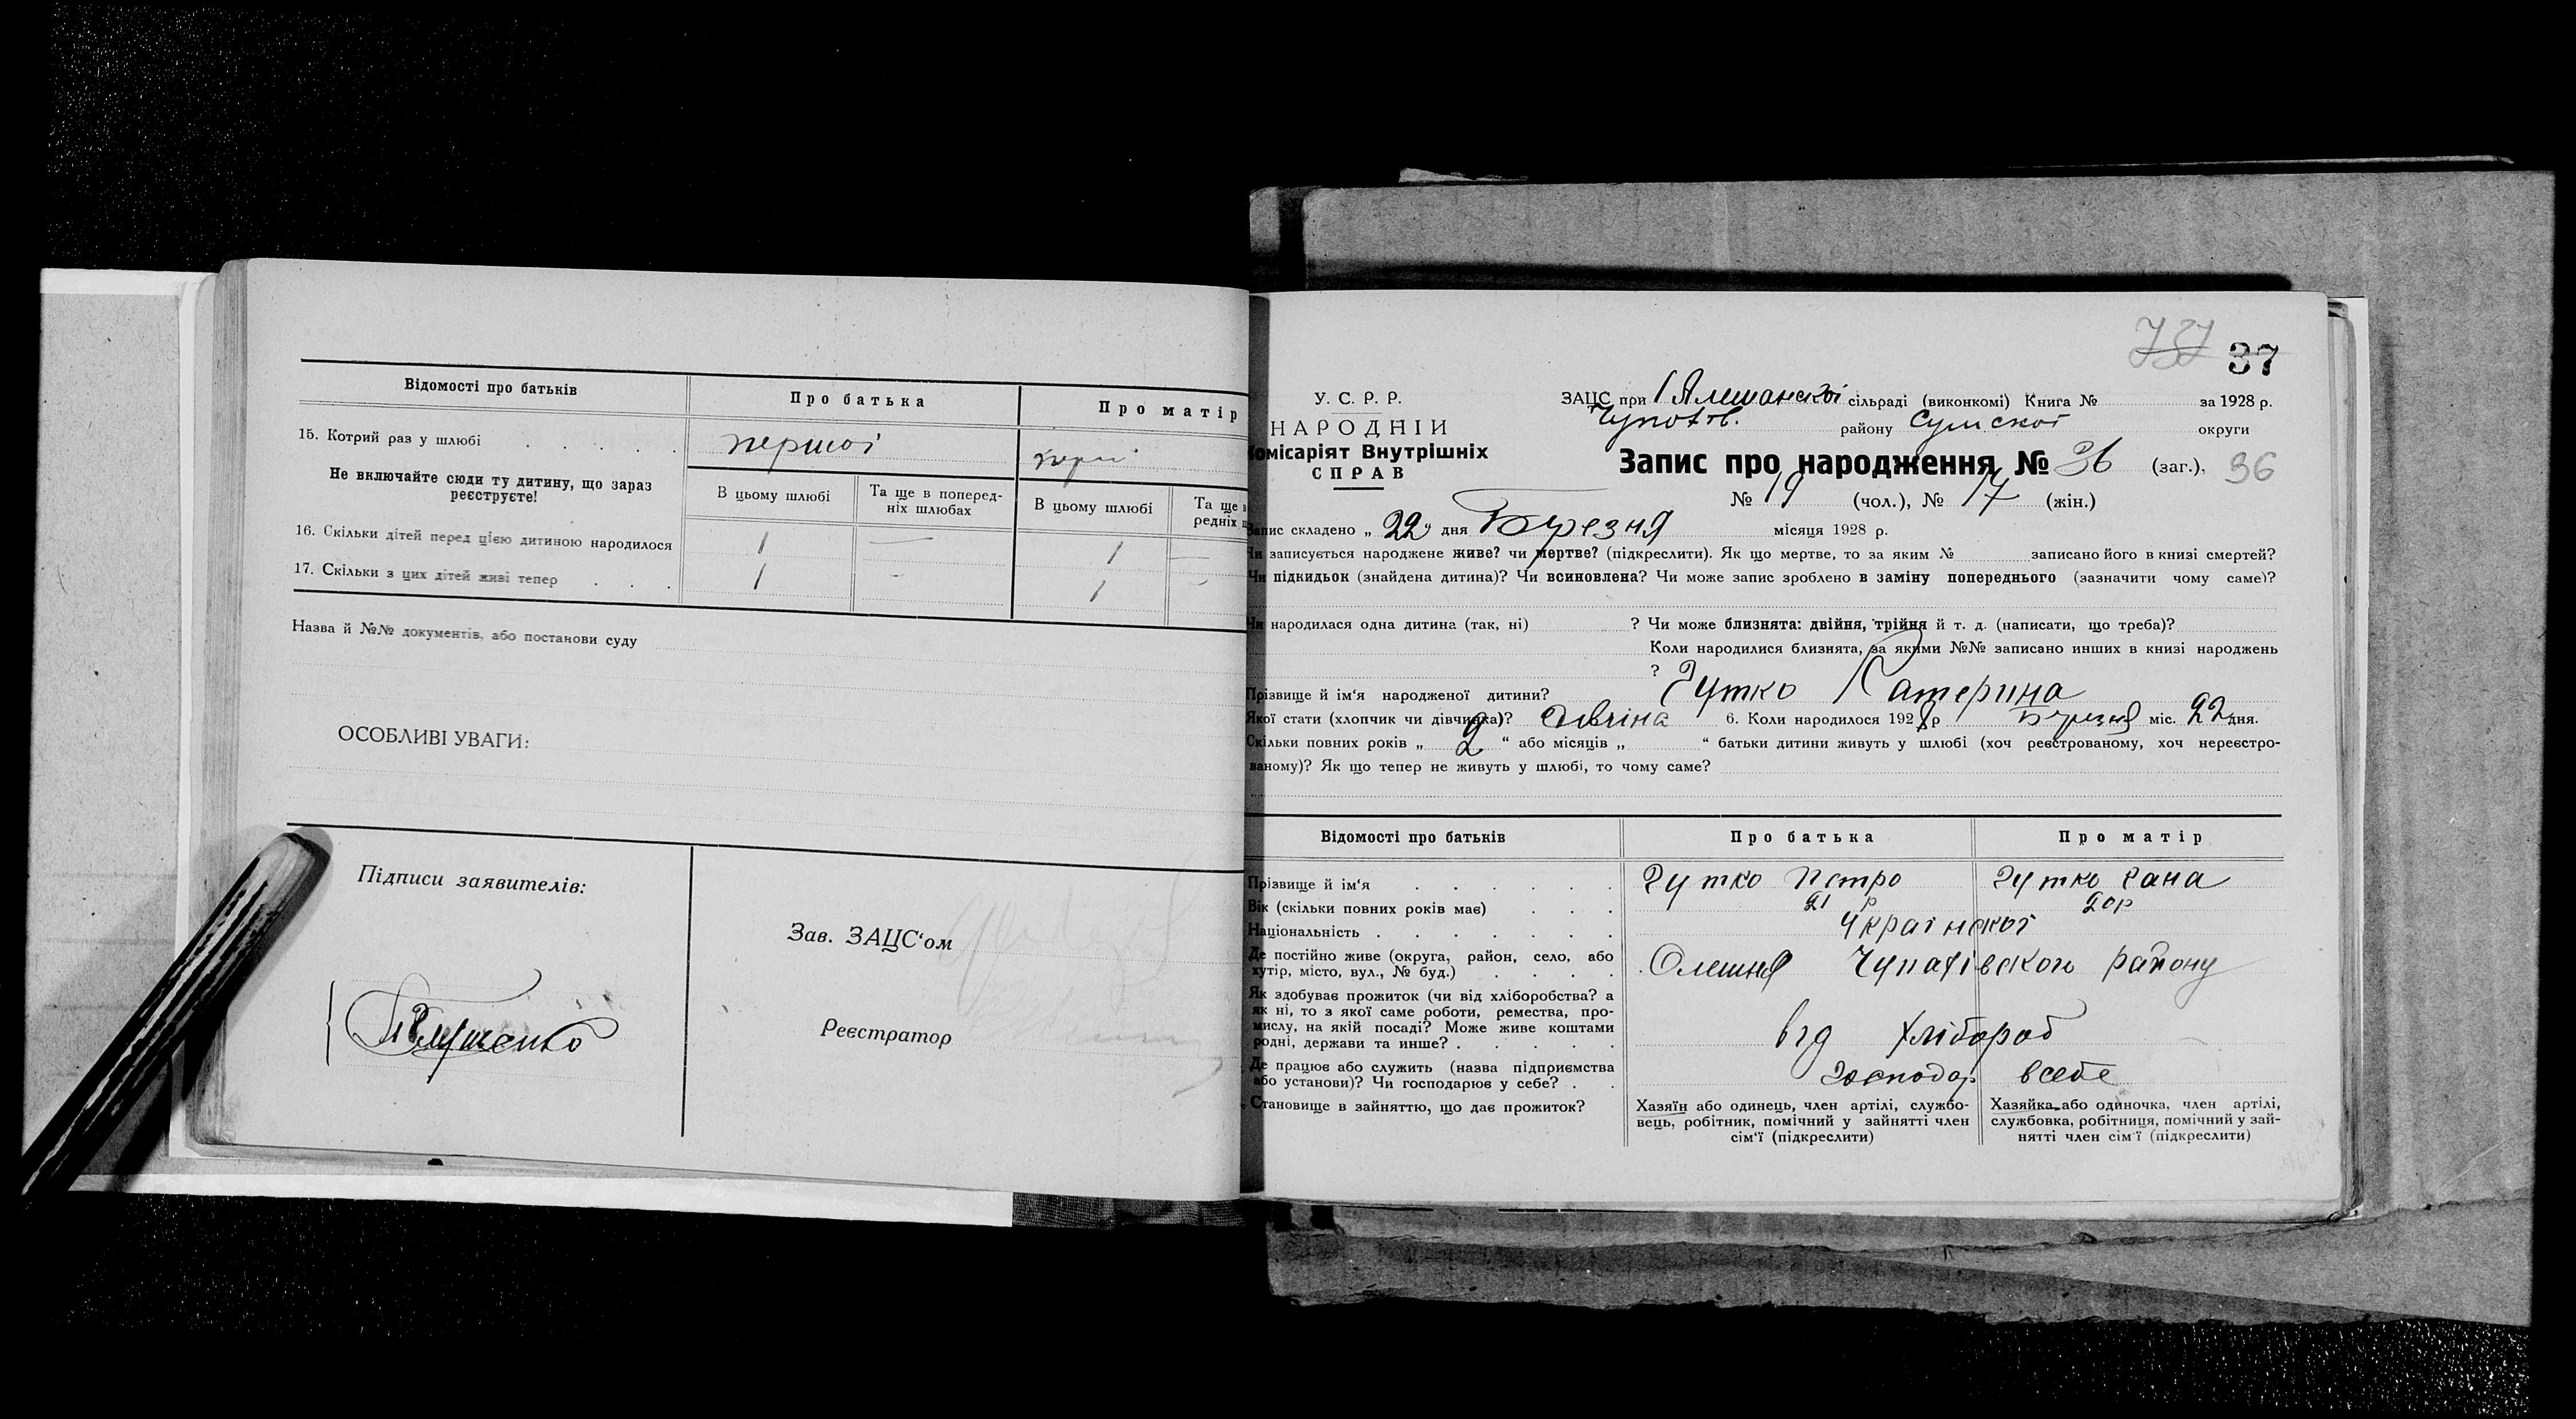 Відомості про батьків
Про батька
Про матір
15. Котрий раз у шлюбі
першої
перш
Не включайте сюди ту дитину, що зараз реєструєте!
В цьому шлюбі
Та ще в поперед-
ніх шлюбах
В цьому шлюбі
Та ще в
редніх
16. Скільки дітей перед цією дитиною народилося 1 — 1 —
17. Скільки з цих дітей живі тепер 1 - 1 -
Назва й №№ документів, або постанови суду
ОСОБЛИВІ УВАГИ:
Підписи заявителів:
Зав. ЗАЦС‘ом
Реєстратор
737 37
У. С. Р. Р.
НАРОДНІЙ
Комісаріят Внутрішніх
СПРАВ
ЗАЦС при сільраді (виконкомі) Книга № за 1928 р.
району Сумскої округи
Запис про народження № 36 (заг.), 36
№ 19 (чол.), № 17 (жін.)
Запис складено „ 22 „ дня Березня місяця 1928 р.
Чи записується народжене живе? чи мертве? (підкреслити). Як що мертве, то за яким № записано його в книзі смертей?
Чи підкидьок (знайдена дитина)? Чи всиновлена? Чи може запис зроблено в заміну попереднього (зазначити чому саме)?
Чи народилася одна дитина (так, ні) ? Чи може близнята: двійня, трійня й т. д. (написати, що треба)?
Коли народилися близнята, за якими №№ записано инших в книзі народжень
?
Прізвище й ім‘я народженої дитини? Гутко Катерина
Якої стати (хлопчик чи дівчинка)? Дівчіна 6. Коли народилося 1928 р Березня міс. 22 дня.
Скільки повних років „ 2 “ або місяців „ “ батьки дитини живуть у шлюбі (хоч реєстрованому, хоч нереєстро-
ваному)? Як що тепер не живуть у шлюбі, то чому саме?
Відомості про батьків
Про батька
Про матір
Прізвище й ім‘я Гутко Петро Гутко Гана
Вік (скільки повних років має) 21 р 20р
Національність Українскої
Де постійно живе (округа, район, село, або
хутір, місто, вул., № буд.) Олешня Чупахівского району
Як здобуває прожиток (чи від хліборобства? а
як ні, то з якої саме роботи, ремества, про-
мислу, на якій посаді? Може живе коштами
родні, держави та инше? від хлібороб
Де працює або служить (назва підприємства
або установи)? Чи господарює у себе? господар всебе
Становище в зайняттю, що дає прожиток?
Хазяїн або одинець, член артілі, службо-
вець, робітник, помічний у зайнятті член
сім‘ї (підкреслити)
Хазяйка або одиночка, член артілі,
службовка, робітниця, помічний у зай-
нятті член сім‘ї (підкреслити)